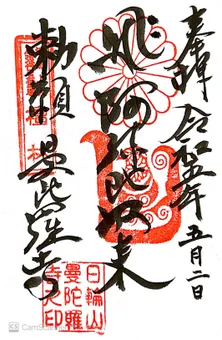 奉拝 令和五年五月二日
飛阿弥陀如来
勅願 曼陀羅寺
日輪山
曼陀羅
寺之印
CS CamScanner